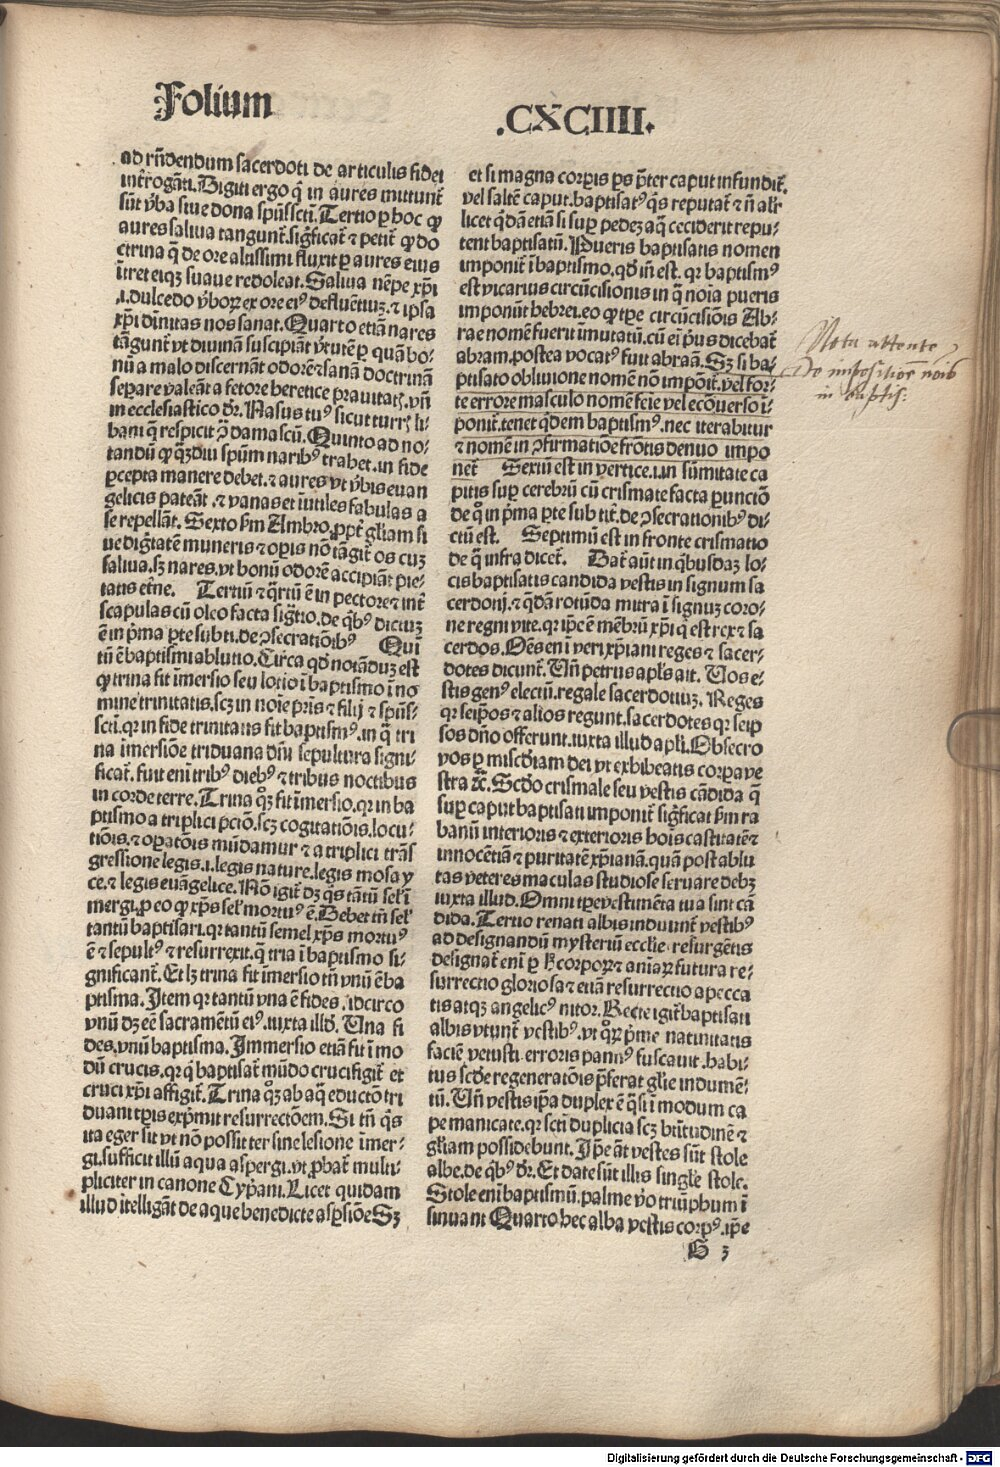 Folium
.CXCIIII.
ad rn̄dendum sacerdoti de articulis fidei
int̄rogāti. Digiti ergo q̄ in aures mittunt̄
sūt v̄ba siue dona spūssctī. Tertio ꝑ hoc ꝙ
aures saliua tangunt̄. sig̅ficat̄ ⁊ petit̄ ꝙ do
ctrina q̄ de ore altissimi fluxit ꝑ aures eius
ītret eiqꝫ suaue redoleat. Saliua nēpe xp̄i
.i. dulcedo v̄boꝝ ex ore eiꝰ defluētiuꝫ. ⁊ ipsa
xp̄i diuinitas nos sanat. Quarto etiā nares
tāgunt̄ vt diuinā suscipiāt v̄tutē ꝑ quā bo-
nū a malo discernāt odorē ⁊ sanā doctrinā
separe valeāt a fetore heretice prauitatꝭ. vn̄
in ecclesiastico dr̄. Nasus tuꝰ sicut turrꝭ li-
bani q̄ respicit ꝯ̄ damascū. Quinto ad no-
tandū ꝙ qꝫdiu spūm naribꝰ trahet. in fide
ꝑcepta manere debet. ⁊ aures vt v̄bis euan
gelicis pateāt. ⁊ vanas et īutiles fabulas a
se repellāt. Sexto ẜm Ambro. ꝓpt̄ gl̄iam si
ue dig̅tatē muneris ⁊ oꝑis nō tāgit̄ os cuꝫ
saliua. sꝫ nares. vt bonū odorē accipiāt pie-
tatis et̄ne. Tertiū ⁊ q̄rtū ē in pectore ⁊ int̄
scapulas cū oleo facta sig̅tio. de qͥbꝰ dictuꝫ
ē in p̄ma ꝑte sub ti. de ꝯsecratiōibꝰ Quī
tū ē baptismi ablutio. Circa qd̓ notāduꝫ est
ꝙ trina fit īmersio seu lotio ī baptismo ī no
mine trinitatis. scꝫ in noīe pr̄is ⁊ filij ⁊ spūs-
sctī. qꝛ in fide trinitatis fit baptismꝰ. in q̄ tri
na īmersiōe triduana dn̄i sepultura signi-
ficat̄. fuit eni tribꝰ diebꝰ ⁊ tribus noctibus
in corde terre. Trina qͦꝫ fit īmersio. qꝛ in ba
ptismo a triplici pctō. scꝫ cogitatiōis. locu-
tiōis. ⁊ oꝑatōis mūdamur ⁊ a triplici trās
gressione legis .i. legis nature. legis mosay
ce. ⁊ legis euāgelice. Nō igit̄ dꝫ qͥs tātū sel̓ ī
mergi. ꝓ eo ꝙ xp̄s sel̓ mortuꝰ ē. Debet tn̄ sel̓
tantū baptisari. qꝛ tantū semel xp̄s mortuꝰ
ē ⁊ sepultꝰ ⁊ resurrexit. q̄ tria ī baptismo si-
gnificant̄. Et lꝫ trina fit īmersio tn̄ vnū ē ba
ptisma. Item qꝛ tantū vna ē fides. idcirco
vnū dꝫ eē sacramētū eiꝰ. iuxta illd̓. Una fi
des. vnū baptisma. Immersio etiā fit ī mo
dū crucis. qꝛ qͥ baptisat̄ mūdo crucifigit̄ et
cruci xp̄i affigit̄. Trina qͦꝫ ab aq̄ eductō tri
duani tꝑis exp̄mit resurrectōem. Si tn̄ qͥs
ita eger sit vt nō possit ter sine lesione īmer-
gi. sufficit illū aqua aspergi. vt ꝓbat̄ multi-
pliciter in canone Cyp̄ani. Licet quidam
illud ītelligāt de aque benedicte aspsiōe Sꝫ
et si magna corꝑis ꝑs p̄ter caput infundit̄.
vel saltē caput. baptisatꝰ qͥs reputat̄ ⁊ n̄ alr̄
licet qͥdā etiā si suꝑ pedeꝫ aq̄ ceciderit repu-
tent baptisatū. Pueris baptisatis nomen
imponit̄ ī baptismo. qd̓ iī est. qꝛ baptismꝰ
est vicarius circūcisionis in q̄ noīa pueris
imponūt hebrei. eo ꝙ tꝑe circūcisiōis Ab-
rae nomē fuerit īmutatū. cū eī p̄us dicebat̄
abram. postea vocatꝰ fuit abraā. Sꝫ si ba-
ptisato obliuione nomē nō impōit̄. vel for-
te errore masculo nomē fēie vel ecōuerso ī-
ponit̄. tenet qͥdem baptismꝰ. nec iterabitur
⁊ nomē in ꝯfirmatiōe frōtis denuo impo
net̄ Sextū est in vertice .i. in sūmitate ca
pitis suꝑ cerebrū cū crismate facta ꝑunctiō
de qͦ in p̄ma ꝑte sub tit̄. de ꝯsecrationibꝰ di-
ctū est. Septimū est in fronte crismatio
de q̄ infra dicet̄. Dat̄ aūt in qͥbusdaꝫ lo-
cis baptisatis candida vestis in signum sa
cerdotij. ⁊ qͥdā rotūda mitra ī signuꝫ coro-
ne regni vite. qꝛ ip̄e ē mēbrū xp̄i qͥ est rex ⁊ sa
cerdos. Oēs eni veri xp̄iani reges ⁊ sacer-
dotes dicunt̄. Vn̄ petrus apl̓s ait. Uos e-
stis genꝰ electū. regale sacerdotiuꝫ. Reges
qꝛ seip̄os ⁊ alios regunt. sacerdotes qꝛ seip̄
sos dn̄o offerunt. iuxta illud apl̓i. Obsecro
vos ꝑ mis̄cdiam dei vt exhibeatis corꝑa ve
stra ⁊c̄. Scd̓o crismale seu vestis cādida q̄
suꝑ caput baptisati imponit̄ sig̅ficat ẜm ra
banū interioris ⁊ exterioris hoīs castitatē ⁊
innocētiā ⁊ puritatē xp̄ianā. quā post ablu
tas veteres maculas studiose seruare debꝫ
iuxta illud. Omni tꝑe vestimēta tua sint cā
dida. Tertio renati albis induunt̄ vestibꝰ
ad designandū mysteriū eccl̓ie resurgētis
designat̄ eni ꝑ ħ corpoꝝ ⁊ aniaꝝ futura re-
surrectio gloriosa ⁊ etiā resurrectio a pecca
tis atqꝫ angelicꝰ nitor. Recte igit̄ baptisati
albis vtunt̄ vestibꝰ. vt qͦꝝ p̄me natiuitatis
faciē vetusti erroris pannꝰ fuscauit. habi-
tus scd̓e regeneratōis p̄ferat gl̓ie indumē-
tū. Vn̄ vestis ip̄a duplex ē q̄si ī modum ca
pe manicate. qꝛ sctī duplicia scꝫ b̄titudinē ⁊
gl̓iam possidebunt. Ip̄e āt vestes sūt stole
albe. de qͥbꝰ dr̄. Et date sūt illis singl̓e stole.
Stole eni baptismū. palme v̄o triūphum ī
sinuant Quarto hec alba vestis corpꝰ. ip̄e
G 3
Nota attente
De impositioe nois
in baptis:
Digitalisierung gefördert durch die Deutsche Forschungsgemeinschaft - DFG